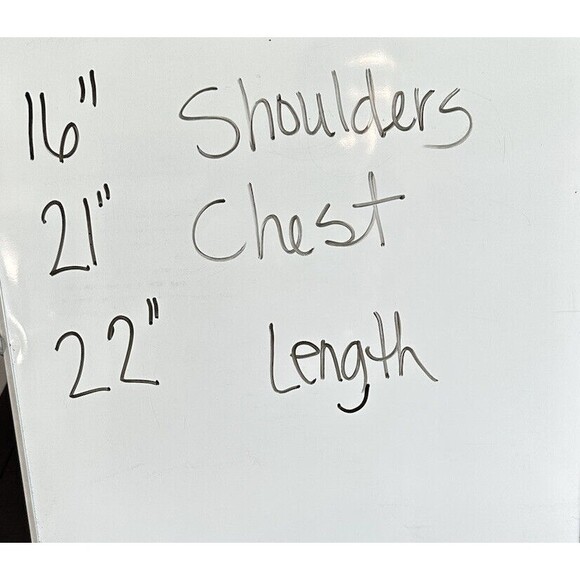 16" Shoulders
21" Chest
22" Length